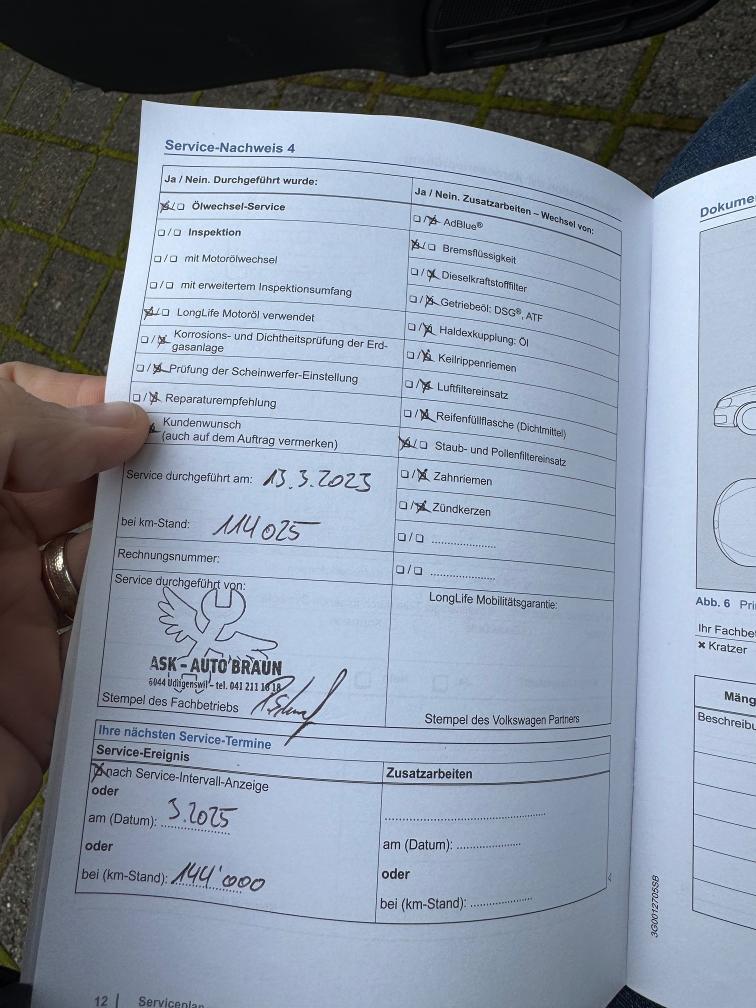 Service-Nachweis 4
Ja / Nein. Durchgeführt wurde:
☒/☐ Ölwechsel-Service
☐/☐ Inspektion
☐/☐ mit Motorölwechsel
☐/☐ mit erweitertem Inspektionsumfang
☒/☐ LongLife Motoröl verwendet
☐/☒ Korrosions- und Dichtheitsprüfung der Erd-
gasanlage
☐/☒ Prüfung der Scheinwerfer-Einstellung
☐/☒ Reparaturempfehlung
Kundenwunsch
(auch auf dem Auftrag vermerken)
Service durchgeführt am: 13.3.2023
bei km-Stand: 114025
Rechnungsnummer:
Service durchgeführt von:
ASK-AUTO BRAUN
6044 Udligenswil - tel. 041 211 18 18
Stempel des Fachbetriebs
Ja / Nein. Zusatzarbeiten – Wechsel von:
☐/☒ AdBlue®
☒/☐ Bremsflüssigkeit
☐/☒ Dieselkraftstofffilter
☐/☒ Getriebeöl: DSG®, ATF
☐/☒ Haldexkupplung: Öl
☐/☒ Keilrippenriemen
☐/☒ Luftfiltereinsatz
☐/☒ Reifenfüllflasche (Dichtmittel)
☒/☐ Staub- und Pollenfiltereinsatz
☐/☒ Zahnriemen
☐/☒ Zündkerzen
☐/☐ ....................
☐/☐ ....................
LongLife Mobilitätsgarantie:
Stempel des Volkswagen Partners
Ihre nächsten Service-Termine
Service-Ereignis
☒ nach Service-Intervall-Anzeige
oder
am (Datum): 3.2025
oder
bei (km-Stand): 144'000
Zusatzarbeiten
..................................................
am (Datum): ....................
oder
bei (km-Stand): ....................
12 | Serviceplan
3G0012705SB
Dokume
Abb. 6 Pri
Ihr Fachbe
× Kratzer
Mäng
Beschreibu